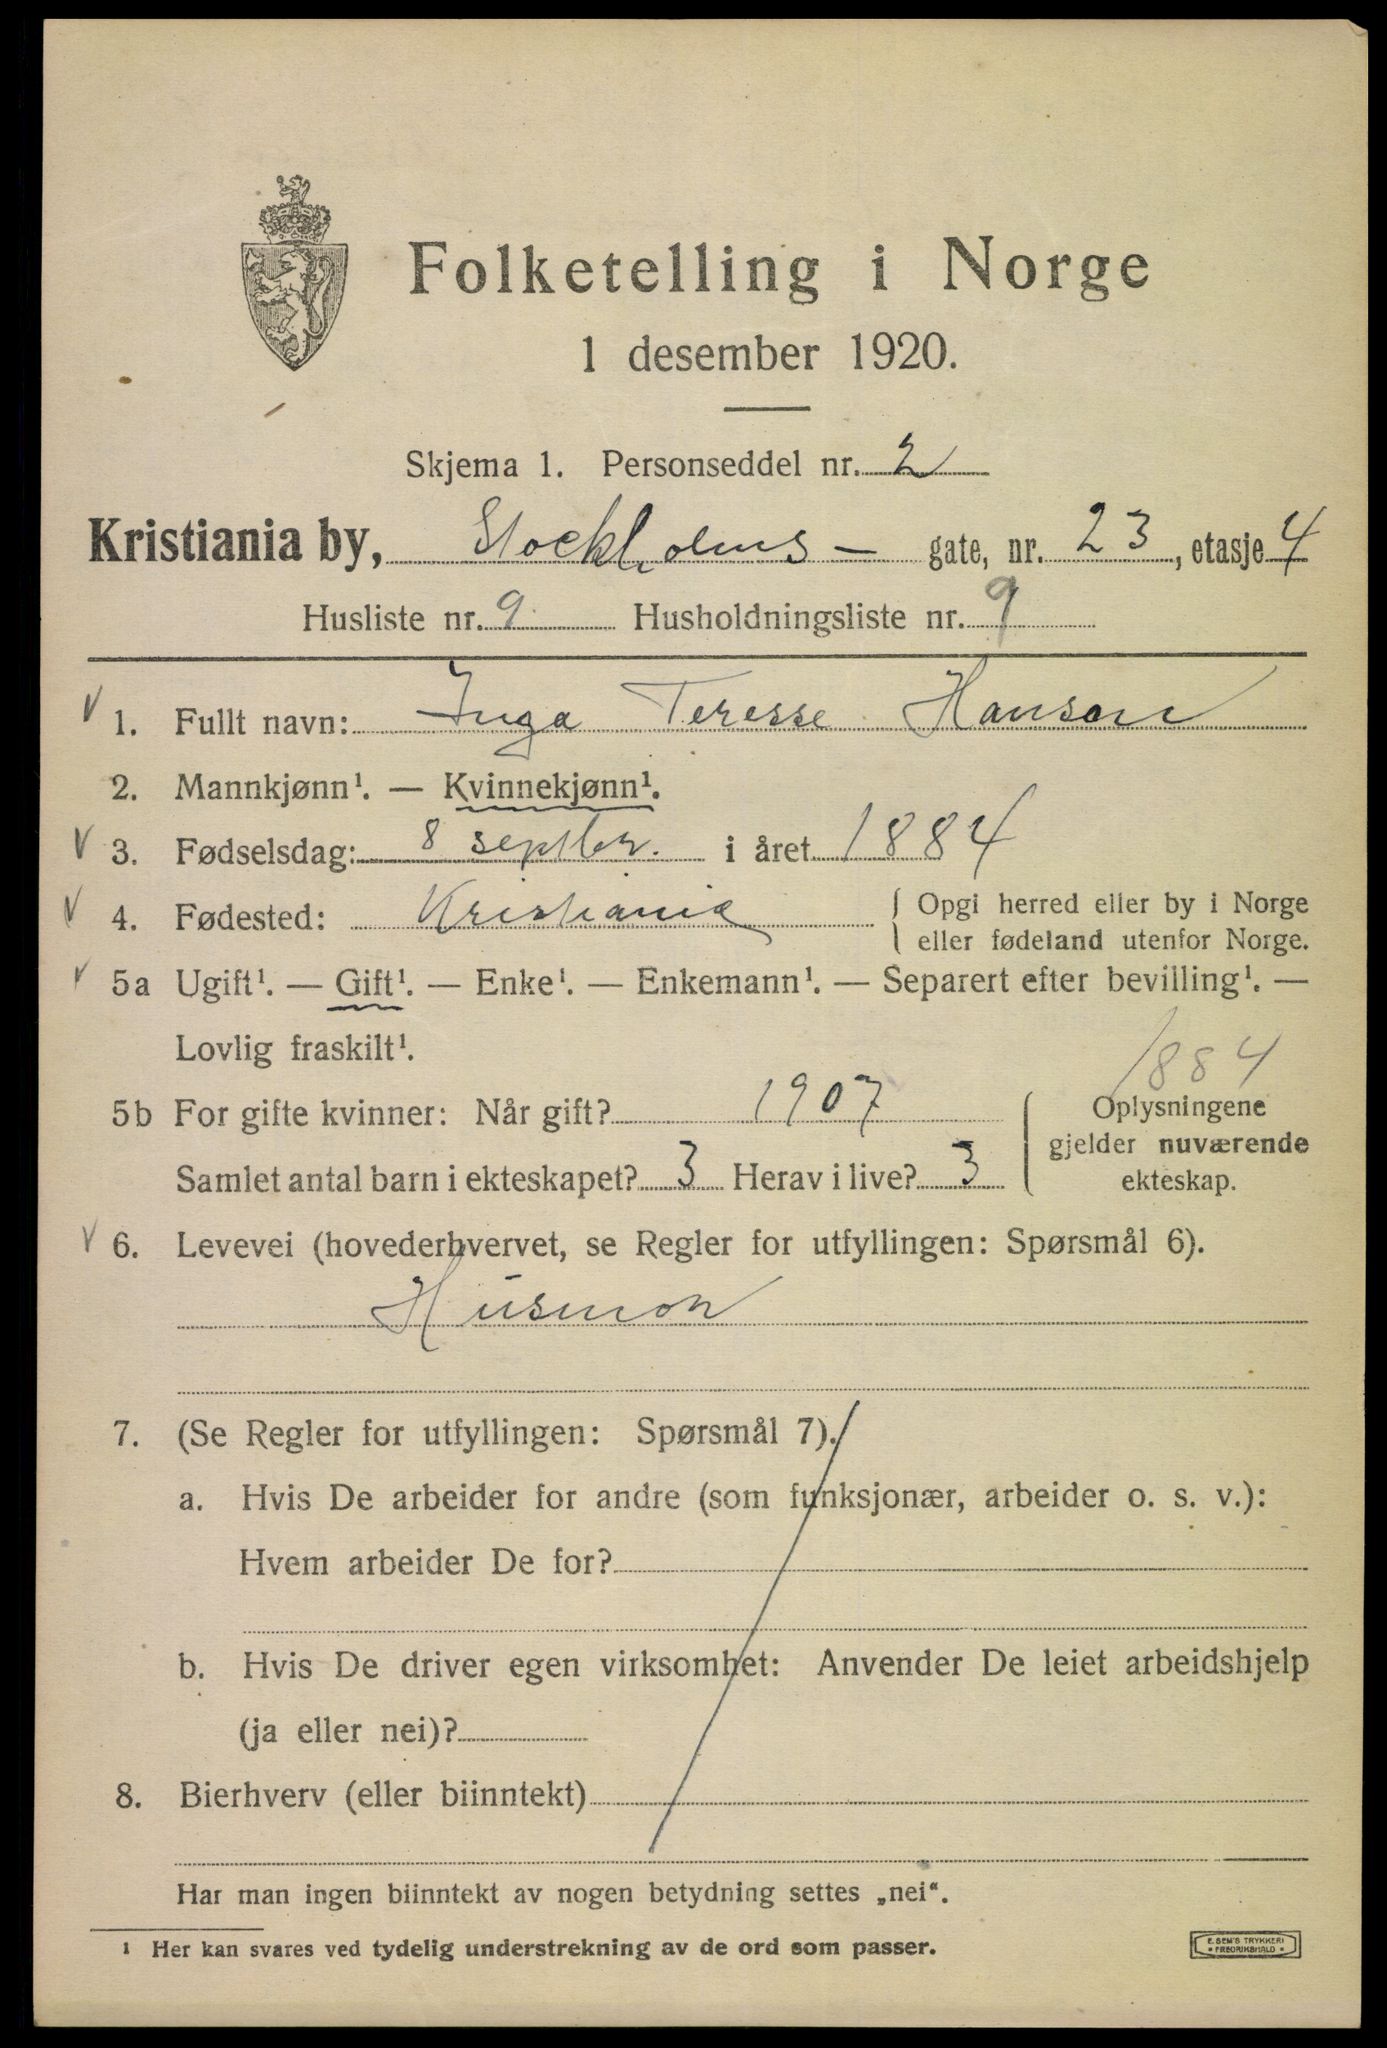 Folketelling i Norge
1 desember 1920.
Skjema 1. Personseddel nr. 2
Kristiania by, Stockholms - gate, nr. 23, etasje 4
Husliste nr. 9 Husholdningsliste nr. 9
1. Fullt navn: Inga Teresse Hansen
2. Mannkjønn¹. — Kvinnekjønn¹.
3. Fødselsdag: 8 septbr. i året 1884
4. Fødested: Kristiania { Opgi herred eller by i Norge
eller fødeland utenfor Norge.
5a Ugift¹. — Gift¹. — Enke¹. — Enkemann¹. — Separert efter bevilling¹. —
Lovlig fraskilt¹.
1884
5b For gifte kvinner: Når gift? 1907
Samlet antal barn i ekteskapet? 3 Herav i live? 3
{ Oplysningene
gjelder nuværende
ekteskap.
6. Levevei (hovederhvervet, se Regler for utfyllingen: Spørsmål 6).
Husmor
7. (Se Regler for utfyllingen: Spørsmål 7).
a. Hvis De arbeider for andre (som funksjonær, arbeider o. s. v.):
Hvem arbeider De for?
b. Hvis De driver egen virksomhet: Anvender De leiet arbeidshjelp
(ja eller nei)?
8. Bierhverv (eller biinntekt)
Har man ingen biinntekt av nogen betydning settes „nei“.
¹ Her kan svares ved tydelig understrekning av de ord som passer.
E. SEM'S TRYKKERI
• FREDRIKSHALD •